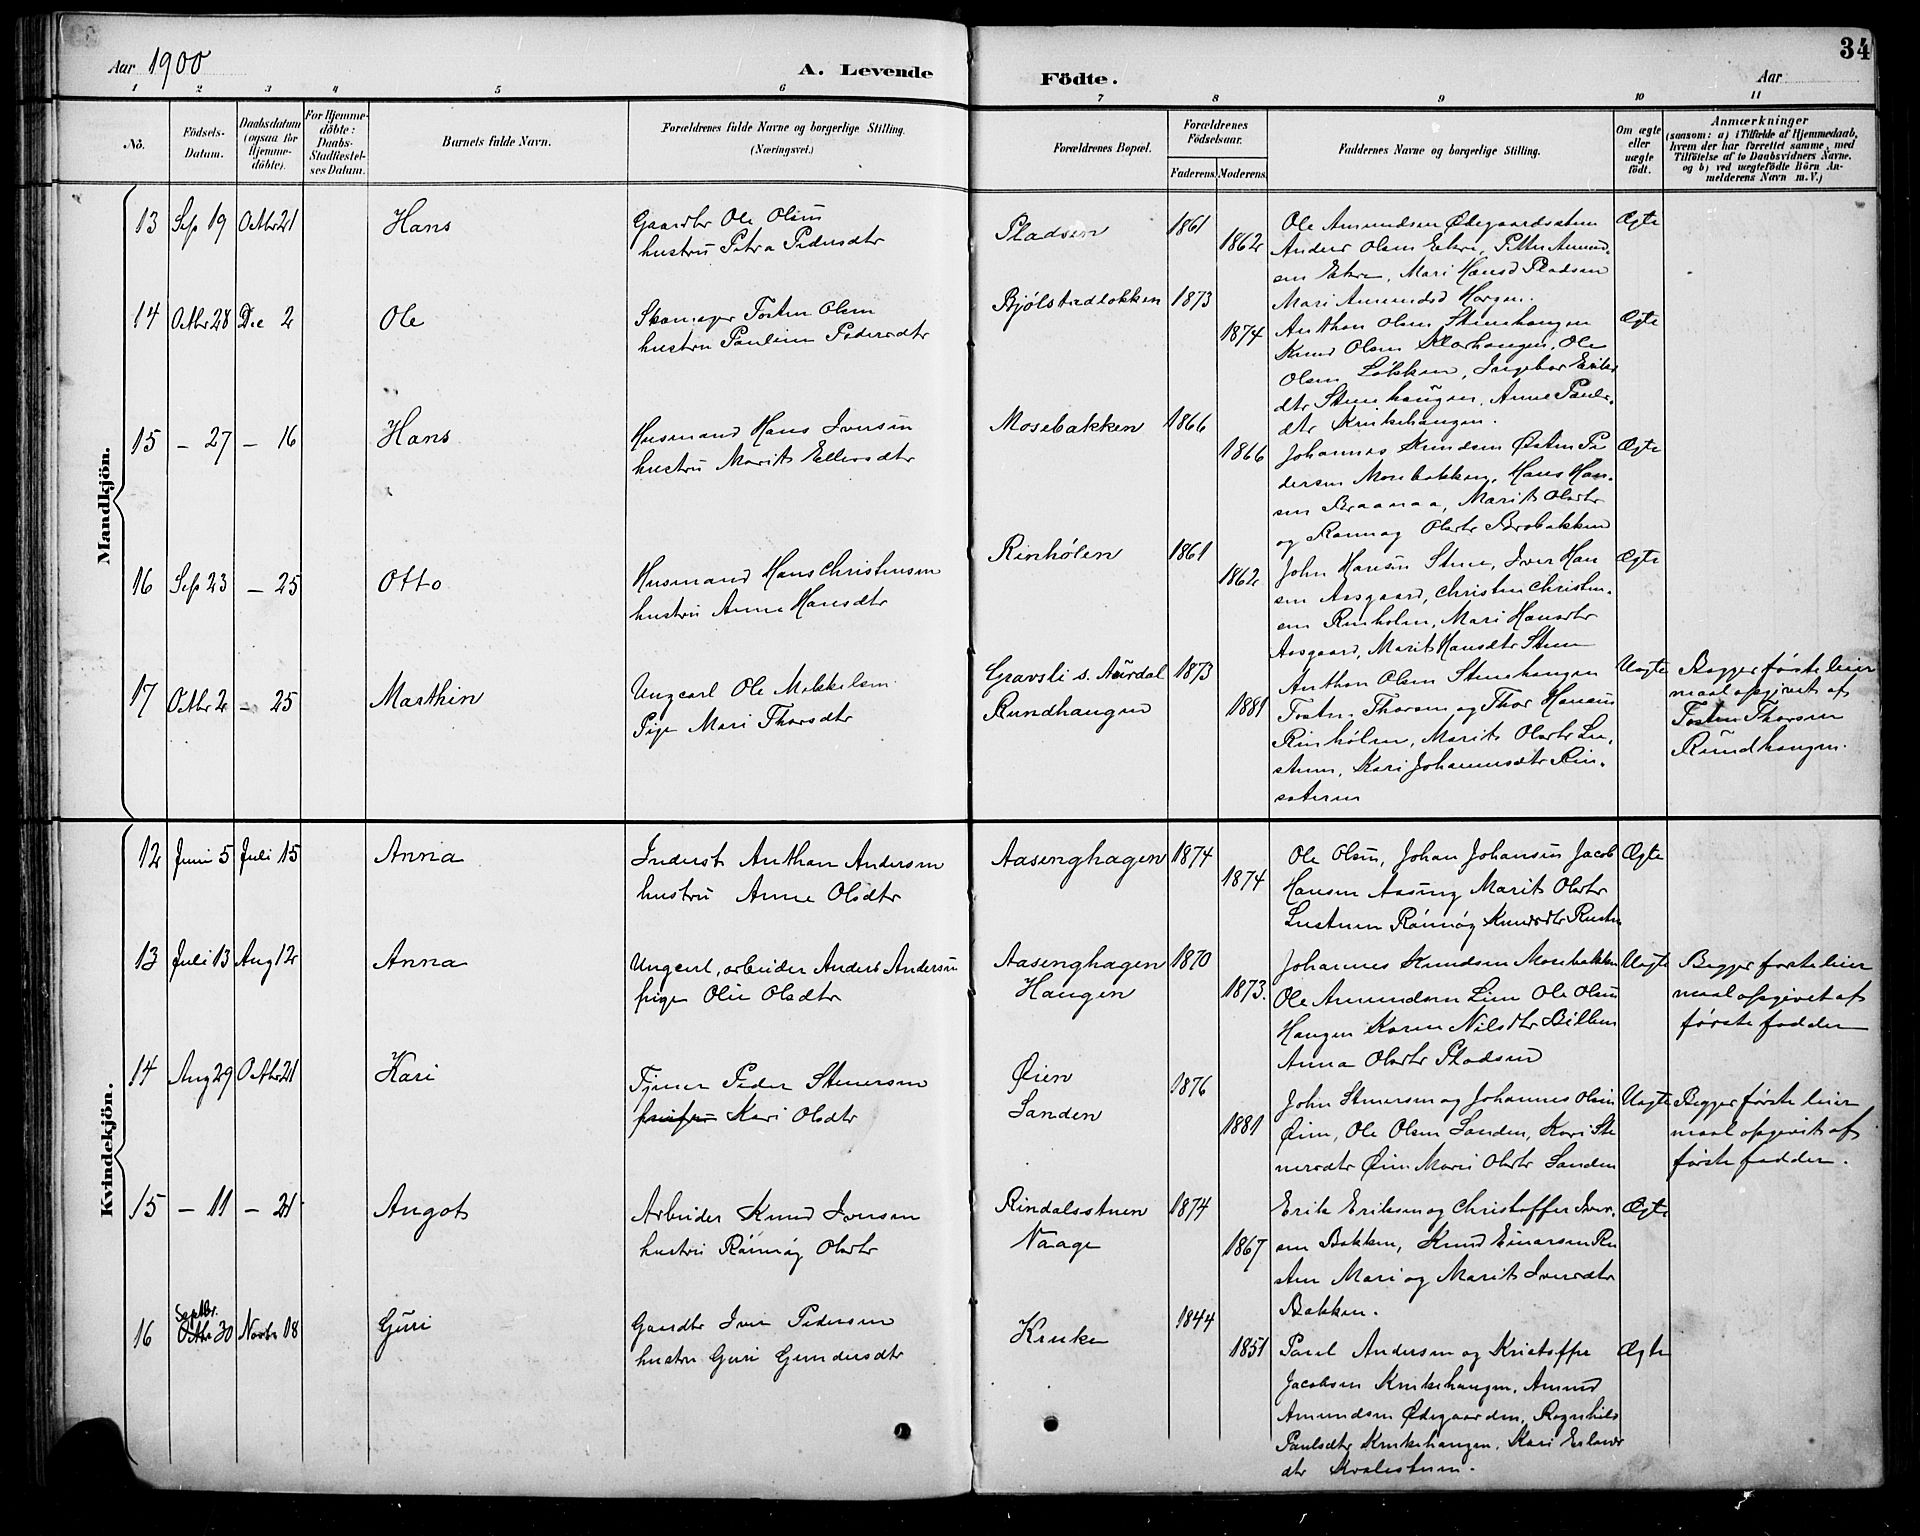 Aar 1900
A. Levende
Födte.
Aar
34
1 2 3 4 5 6 7 8 9 10 11
No.
Födsels-
Datum.
Daabsdatum
(ogsaa for
Hjemme-
döbte).
For Hjemme-
döbte:
Daabs-
Stadfæstel-
ses Datum.
Barnets fulde Navn.
Forældrenes fulde Navne og borgerlige Stilling.
(Næringsvei.)
Forældrenes Bopæl.
Forældrenes
Födselsaar.
Faderens. Moderens.
Faddernes Navne og borgerlige Stilling.
Om ægte
eller
uægte
födt.
Anmærkninger
(saasom: a) i Tilfælde af Hjemmedaab,
hvem der har forrettet samme, med
Tilföielse af to Daabsvidners Navne,
og b) ved uægtefödte Börn An-
melderens Navn m. V.)
Mandkjön.
13 Sep 19 Octbr 21 Hans
Gaardbr Ole Olsen
hustru Petra Pedersdtr
Pladsen
1861
1862
Ole Amundsen Ødegaardsstuen
Anders Olsen Ekre, Petter Amund-
sen Ekre, Mari Hansd Pladsen
Mari Amundsd Horgen.
Ægte
14 Octbr 28 Dec 2 Ole
Skomager Tosten Olsen
hustru Pauline Pedersdtr
Bjølstadløkken
1873
1874
Anthon Olsen Stenehaugen
Knud Olsen Klorhaugen, Ole
Olsen Løkken, Ingebor Eriks
dtr Stenehaugen, Anne Pauls-
dtr Krukehaugen.
Ægte
15 - 27 - 16 Hans
Husmand Hans Iversen
hustru Marit Ellersdtr
Mosebakken
1866
1866
Johannes Knudsen Østen Pe
dersen Mosebakken, Hans Han-
sen Braanaa, Marit Olsdtr
og Rannog Olsdtr Brobakken
Ægte
16 Sep 23 - 25 Otto
Husmand Hans Christensen
hustru Anne Hansdtr
Rinhølen
1861
1862
John Hansen Stene, Iver Han
sen Aasgaard, Christen Christen-
sen Rinhølen, Mari Hansdtr
Aasgaard, Marit Hansdtr Stene
Ægte
17 Octbr 2 - 25 Marthin
Ungcarl Ole Mikkelsen
Pige Mari Thorsdtr
Gravsli s. Aurdal
Rundhaugen
1873
1881
Anthon Olsen Stenehaugen
Tosten Thorsen og Thor Hansen
Rinhølen, Marit Olsdtr Lu-
stuen, Kari Johannesdtr Rin-
sæteren
Uægte
Begges første leier
maal opgivet af
Tosten Thorsen
Rundhaugen.
Kvindekjön.
12 Juni 5 Juli 15 Anna
Inderst Anthon Andersen
hustru Anne Olsdtr
Aasenghagen
1874
1874
Ole Olsen, Johan Johansen Jacob
Hansen Aaseng Marit Olsdtr
Lustuen Rønnøg Knudsdtr Rusten
Ægte
13 Juli 13 Aug 12 Anna
Ungcarl, arbeider Anders Andersen
pige Olie Olsdtr
Aasenghagen
Haugen
1870
1873.
Johannes Knudsen Mosebakken
Ole Amundsen Lien Ole Olsen
Haugen Karen Nilsdtr Billen
Anna Olsdtr Pladsen
Uægte
Begges første leier
maal opgivet af
første fadder
14 Aug 29 Octbr 21 Kari
Tjener Peder Stenersen
Kari Olsdtr
Øien
Sanden
1876
1881
John Stenersen og Johannes Olsen
Øien, Ole Olsen Sanden, Kari Ste
nersdtr Øien Mari Olsdtr Sanden
Uægte
Begges første leier
maal opgivet af
første fadder.
15 - 11 - 21 Angot
Arbeider Knud Iversen
hustru Rønnøg Olsdtr
Rindalsstuen
Vaage
1874
1867
Erik Eriksen og Christoffer Iver-
sen Bakken, Knud Einarsen Ru
sten Mari og Marit Iversdtr
Bakken.
Ægte
16 Septbr. Octbr 30 Novbr 18 Guri
Gaardbr Iver Pedersen
hustru Guri Gundersdtr
Kruke
1844
1851
Paul Andersen og Kristoffer
Jacobsen Krukehaugen, Amund
Amundsen Ødegaarden, Rognhild
Paulsdtr Krukehaugen, Kari Erlands
dtr Kvalestuen.
Ægte